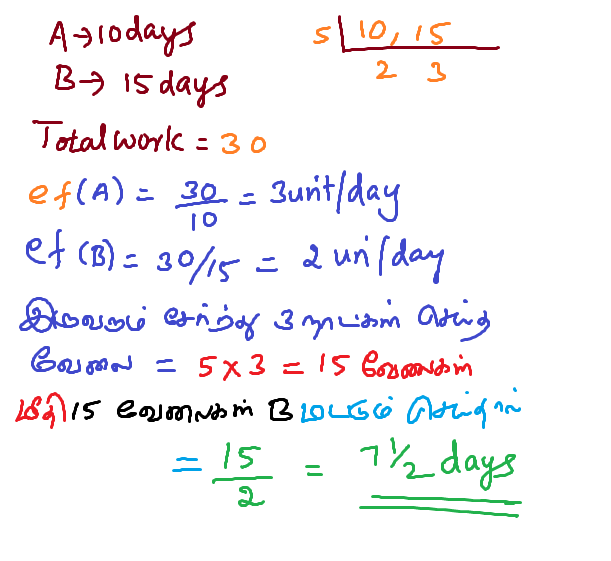 A→10days
5 10, 15
B→ 15 days
2 3
Total work = 30
ef(A) = 30/10 = 3unit/day
ef (B) = 30/15 = 2 uni/day
இருவரும் சேர்ந்து 3 நாட்கள் செய்த
வேலை = 5 x 3 = 15 வேலைகள்
மீதி 15 வேலைகள் B மட்டும் செய்தால்
= 15/2 = 7 1/2 days